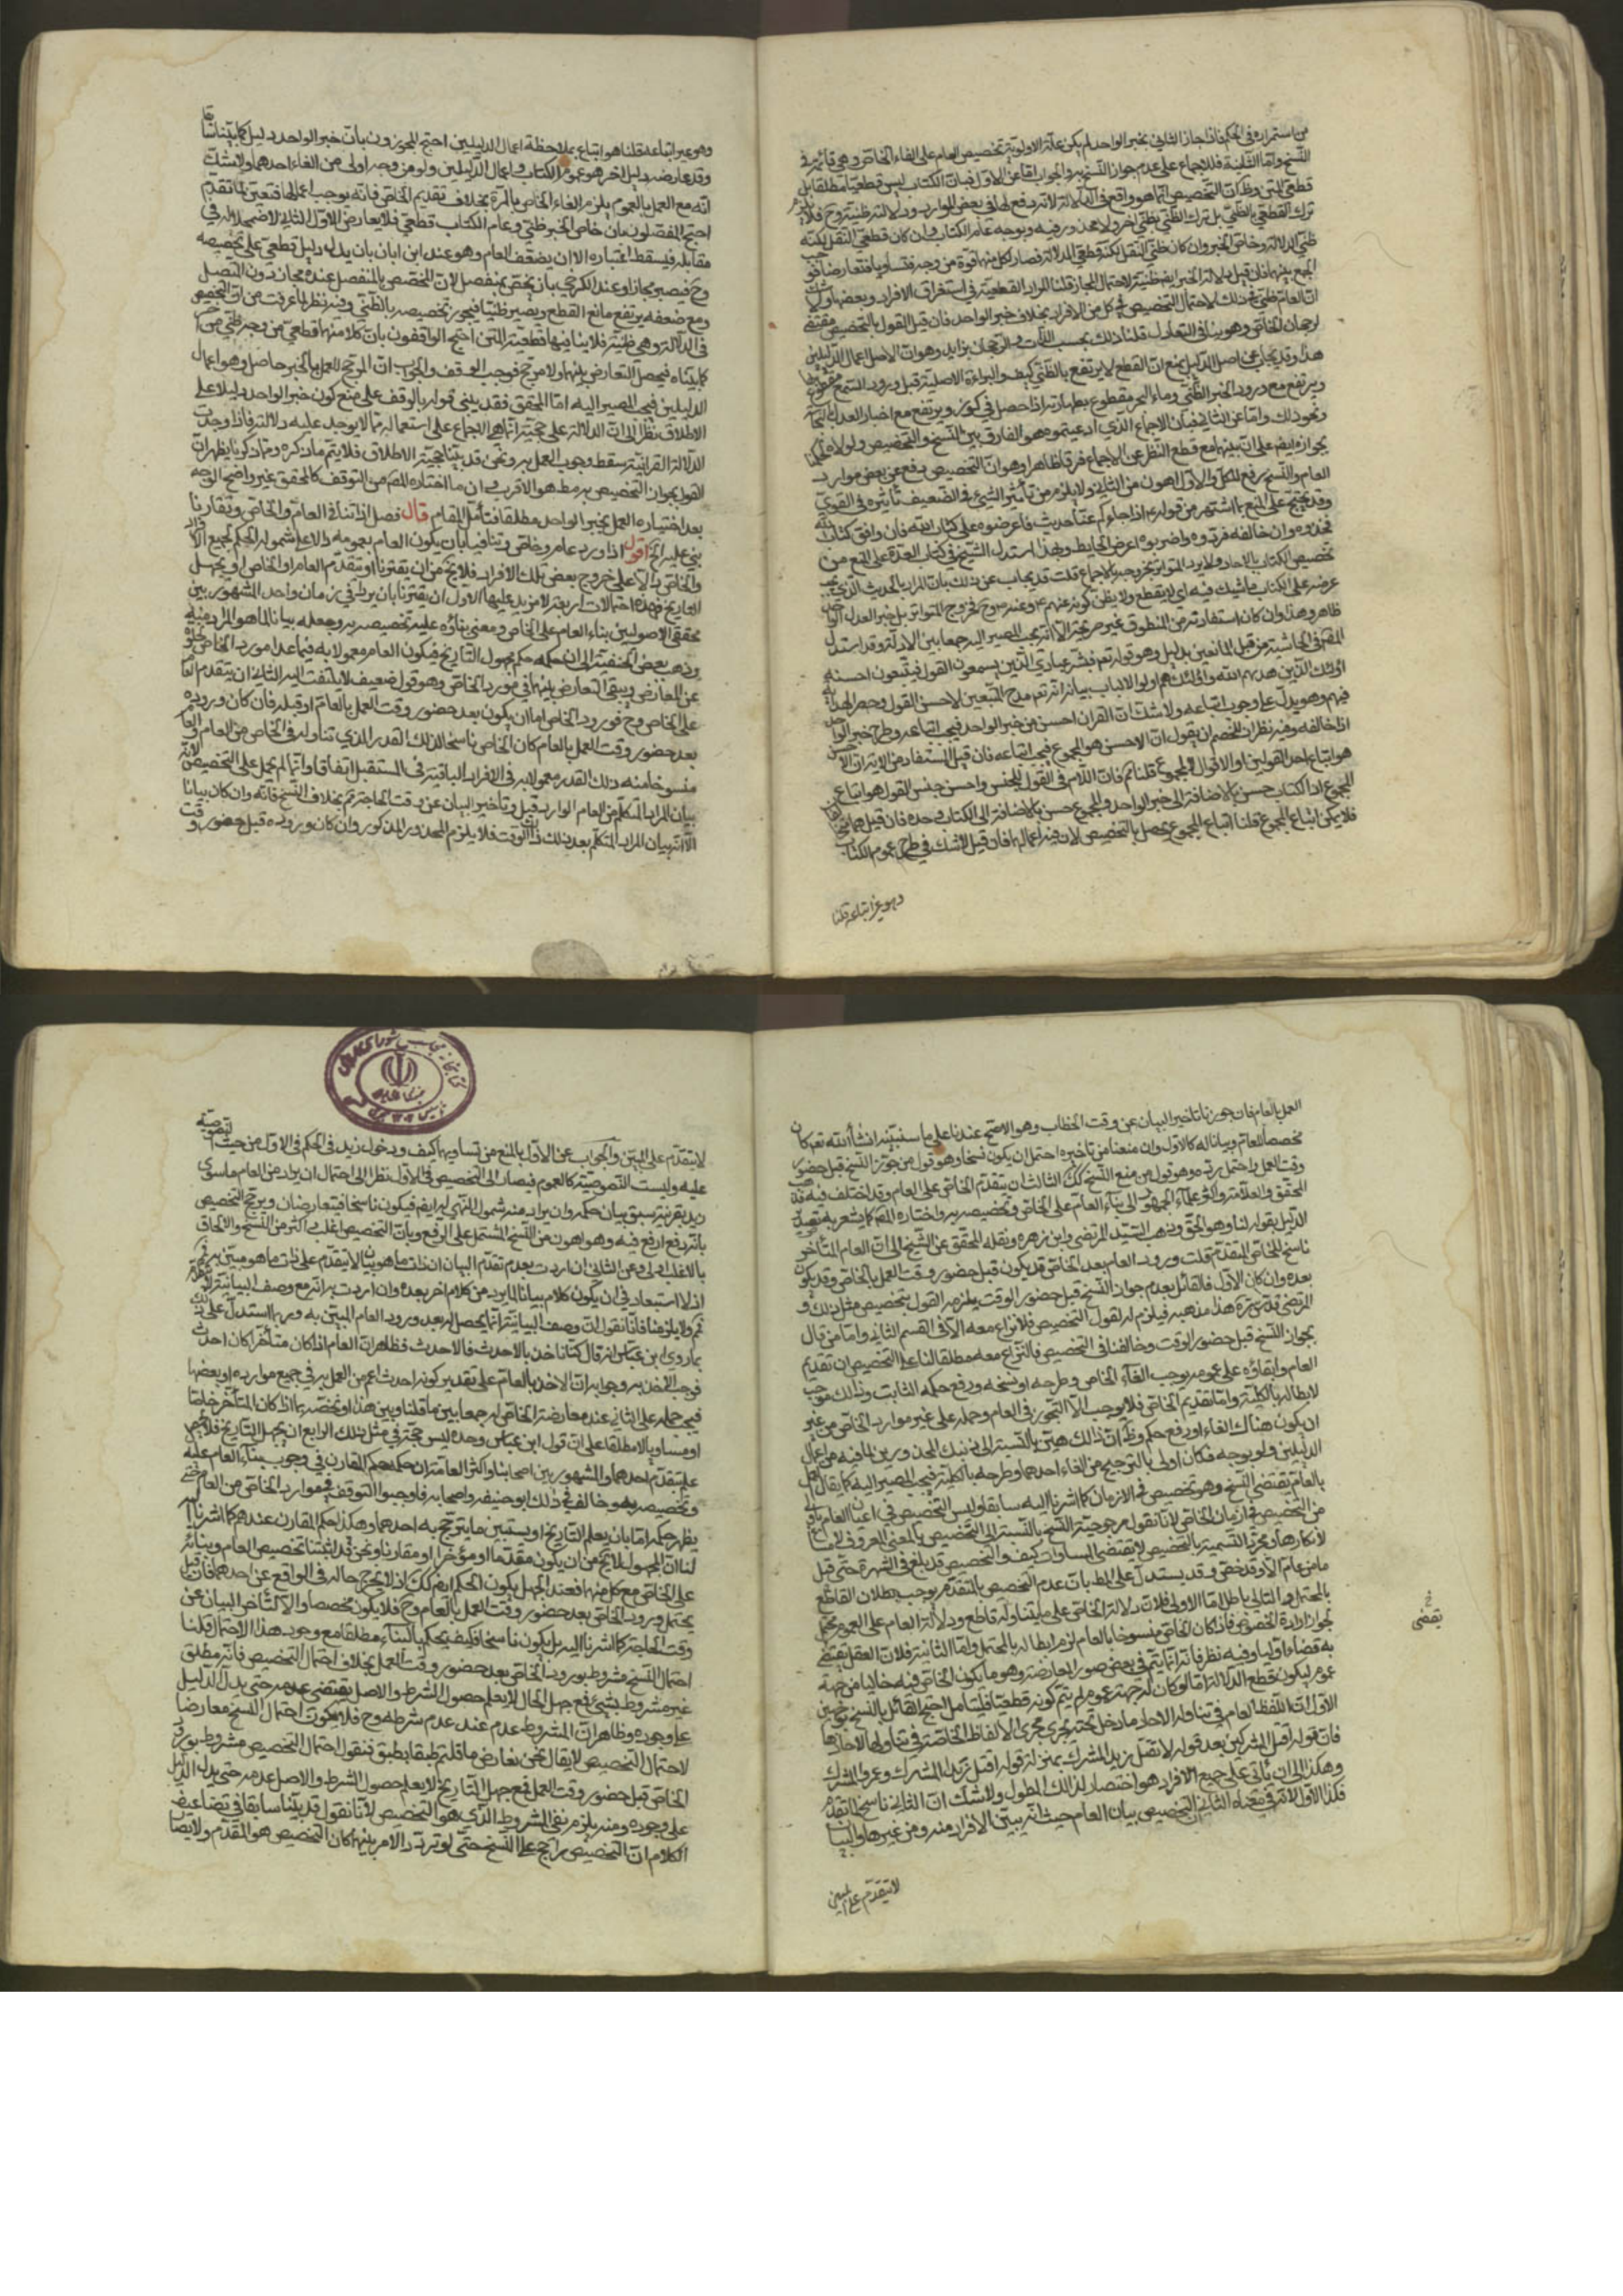 من استمراره في الحكم فاذا جاز الثاني بخبر الواحد لم يكن علة الاولوية تخصيص العام على الغاء الخاص وهي قائمة في
النسخ واما الثانية فللاجماع على عدم جواز النسخ به والجواب اما عن الاول فبان الكتاب ليس قطعيا مطلقا بل
قطعي المتن وظ ان التخصيص انما هو واقع في الدلالة لانه دفع لها في بعض الموارد ودلالته ظنية وح فلا يلزم
ترك القطعي بالظني بل ترك الظني بظني اخر ولا محذور فيه وبوجه عام الكتاب وان كان قطعي النقل لكنه
ظني الدلالة وخاص الخبر وان كان ظني النقل لكنه قطعي الدلالة فصار لكل منهما قوة من وجه فتساويا فتعارضا فوجب
الجمع بينهما فان قيل دلالة الخبر ايضا ظنية لاحتمال المجاز قلنا المراد القطعية في استغراق الافراد وبعضها ولا شك
ان العام ظني في ذلك لاحتمال التخصيص في كل من الافراد بخلاف خبر الواحد فان قيل القول بالتخصيص مقتض
لرجحان الخاص وهو ينافي التعادل قلنا ذلك بحسب الذات والرجحان بزايد وهو ان الاصل اعمال الدليلين
هذا وقد يجاب عن اصل الدليل بمنع ان القطع لا يرتفع بالظني كيف والبراءة الاصلية قبل ورود السمع مقطوع بها
ويرتفع مع ورود الخبر الظني وماء البحر مقطوع بطهارته اذا حصل في كوز ويرتفع مع اخبار العدل بنجاسته
ونحو ذلك واما عن الثاني فبان الاجماع الذي ادعيتموه هو الفارق بين النسخ والتخصيص ولولاه لحكمنا
بجوازه ايضا على ان بينهما مع قطع النظر عن الاجماع فرقا ظاهرا وهو ان التخصيص دفع عن بعض موارد
العام والنسخ رفع للكل والاول اهون من الثاني ولا يلزم من تأثير الشيء في الضعيف تأثيره في القوي
وقد يحتج على المنع بما اشتهر من قوله م اذا جاءكم عنا حديث فاعرضوه على كتاب الله فان وافق كتاب الله
فخذوه وان خالفه فردوه او اضربوه اعرض الحايط وبهذا استدل الشيخ في كتاب العدة على المنع من
تخصيص الكتاب بالاحاد ولا يرد المتواتر بخروجه بالاجماع قلت قد يجاب عن ذلك بان المراد بالحديث الذي يجب
عرضه على الكتاب ما شك فيه اي لا يقطع ولا يظن كونه عنهم
ظاهر وهذا وان كان استفادته من المنطوق غير صريحة الا انه يجب المصير اليه جمعا بين الادلة وقد استدل
المص في الحاشية من قبل المانعين بدليل وهو قوله تعم فبشر عبادي الذين يسمعون القول فيتبعون احسنه
اولئك الذين هديهم الله واولئك هم اولوا الالباب بيانه انه تعم مدح المتبعين لاحسن القول وحصر الهداية
فيهم وهو يدل على وجوب اتباعه ولا شك ان القران احسن من خبر الواحد فيجب اتباعه وطرح خبر الواحد
اذا خالفه وفيه نظر لان للخصم ان يقول ان الاحسن هو المجموع فيجب اتباعه فان قيل المستفاد من الاية ان الاحسن
هو اتباع احد القولين او الاقوال المجموع قلنا نعم فان اللام في القول للجنس واحسن جنس القول هو اتباع
المجموع اذ الكتاب حسن بالاضافة الى خبر الواحد والمجموع حسن بالاضافة الى الكتاب وحده فان قيل هما متخالفان
فلا يمكن اتباع المجموع قلنا اتباع المجموع يحصل بالتخصيص لان فيه اعمالهما فان قيل لا شك في طرح عموم الكتاب
وهو غير اتباعه قلنا
وهو غير اتباعه قلنا هو اتباع بملاحظة اعمال الدليلين احتج المجوزون بان خبر الواحد دليل كما بينا سابقا
وقد عارضه دليل اخر هو عموم الكتاب وفي اعمال الدليلين ولو من وجه اولى من الغاء احدهما ولا شك
انه مع العمل بالعموم يلزم الغاء الخاص بالمرة بخلاف تقديم الخاص فانه يوجب اعمالهما فتعين لما تقدم
احتج المفصلون بان خاص الخبر ظني وعام الكتاب قطعي فلا يعارض الاول الثاني لاضمحلاله في
مقابله فيسقط اعتباره الا ان يضعف العام وهو عند ابن ابان بان يدله دليل قطعي على تخصيصه
وح فيصير مجازا وعند الكرخي بان يخص بمنفصل لان المخصص بالمنفصل عنده مجاز دون المتصل
ومع ضعفه يرتفع مانع القطع ويصير ظنيا فيجوز تخصيصه بالظني وفيه نظر لما عرفت من ان التخصيص
في الدلالة وهي ظنية فلا ينافيها قطعية المتن احتج الواقفون بان كلا منهما قطعي من وجه ظني من اخر
كما بيناه فيحصل التعارض بينهما ولا مرجح فوجب الوقف والجواب ان المرجح للعمل بالخبر حاصل وهو اعمال
الدليلين فيجب المصير اليه اما المحقق فقد بنى قوله بالوقف على منع كون خبر الواحد دليلا على
الاطلاق نظرا الى ان الدلالة على حجيته انما هي الاجماع على استعماله فيما لا يوجد عليه دلالة فاذا وجدت
الدلالة القرانية سقط وجوب العمل به ونحن قد بينا حجيته الاطلاق فلا يتم ما ذكره ومما ذكرنا يظهر ان
القول بجواز التخصيص به مط هو الاقرب وان ما اختاره المص من التوقف كالمحقق غير واضح الوجه
بعد اختياره العمل بخبر الواحد مطلقا فتأمل المقام قال فصل اذا تنافى العام والخاص وتقارنا
بني عليه الخ اقول اذا ورد عام وخاص وتنافيا بان يكون العام بعمومه دالا على شمول الحكم لجميع الافراد
والخاص دالا على خروج بعض تلك الافراد فلا يخ من ان يقترنا او يتقدم العام او الخاص او يجهل
التاريخ فهذه احتمالات اربعة لا مزيد عليها الاول ان يقترنا بان يردا في زمان واحد المشهور بين
محققي الاصوليين بناء العام على الخاص ومعنى بنائه عليه تخصيصه به وجعله بيانا لما هو المراد منه
وذهب بعض الحنفية الى ان حكمه حكم مجهول التاريخ فيكون العام معمولا به فيما عدا مورد الخاص لخلوه
عن المعارض ويبقى التعارض بينهما في مورد الخاص وهو قول ضعيف لا يلتفت اليه الثاني ان يتقدم العام
على الخاص وح فورود الخاص اما ان يكون بعد حضور وقت العمل بالعام او قبله فان كان وروده
بعد حضور وقت العمل بالعام كان الخاص ناسخا لذلك القدر الذي تناوله في الخاص من العام والعام
منسوخا منه ذلك القدر معمولا به في الافراد الباقية في المستقبل اتفاقا وانما لم يحمل على التخصيص لانه
بيان المراد المتكلم من العام الوارد قبل وتأخير البيان عن وقت الحاجة قبيح بخلاف النسخ فانه وان كان بيانا
الا انه بيان المراد المتكلم بعد ذلك الوقت فلا يلزم المحذور المذكور وان كان وروده قبل حضور وقت
العمل بالعام فان جوزنا تاخير البيان عن وقت الخطاب وهو الاصح عندنا على ما سنبينه انشاء الله تعم كان
مخصصا للعام وبيانا له كالاول وان منعنا من تاخيره احتمل ان يكون نسخا وهو قول من جوز النسخ قبل حضور
وقت العمل واحتمل رده وهو قول من منع النسخ كك الثالث ان يتقدم الخاص على العام وقد اختلف فيه فذهب
المحقق والعلامة واكثر علماء الجمهور الى بناء العام على الخاص وتخصيصه به واختاره المص كما يشعر به تصدير
الدليل بقوله لنا وهو الحق وذهب السيد المرتضى وابن زهره ونقله المحقق عن الشيخ الى ان العام المتأخر
ناسخ للخاص المتقدم قلت ورود العام بعد الخاص قد يكون قبل حضور وقت العمل بالخاص وقد يكون
بعده وان كان الاول فالقائل بعدم جواز النسخ قبل حضور الوقت يلزمه القول بتخصيص مثل ذلك و
المرتضى قدس سره هذا مذهبه فيلزم له لقول التخصيص فلا نزاع معه الا في القسم الثاني واما من قال
بجواز النسخ قبل حضور الوقت وخالفنا في التخصيص فالنزاع معه مطلقا لنا على التخصيص ان تقديم
العام وابقاؤه على عمومه يوجب الغاء الخاص وطرحه او نسخه ورفع حكمه الثابت وذلك موجب
لابطاله بالكلية واما تقديم الخاص فلا يوجب الا التجوز في العام وحمله على غير موارد الخاص من غير
ان يكون هناك الغاء او رفع حكم وظ ان ذلك هين بالنسبة الى ذينك المحذورين لما فيه من اعمال
الدليلين ولو بوجه فكان اولى بالترجيح من الغاء احدهما وطرحه بالكلية فيجب المصير اليه كما يقال العمل
بالعام يقتضي النسخ وهو تخصيص في الازمان كما اشرنا اليه سابقا وليس التخصيص في اعيان العام باولى
من التخصيص في ازمان الخاص لانا نقول مرجوحية النسخ بالنسبة الى التخصيص بالمعنى المعروف لا مساغ
لانكارها ومجرد التسمية بالتخصيص لا يقتضي المساوات كيف والتخصيص قد بلغ في الشهرة حتى قيل
ما من عام الا وقد خص وقد يستدل على المط بان عدم التخصيص بالمتقدم يوجب بطلان القاطع
بالمحتمل والتالي باطل اما الاولى فلان دلالة الخاص على ما يتناوله قاطع ودلالة العام على العموم محتمل
لجواز ارادة الخصوص فاذا كان الخاص منسوخا بالعام لزم ابطاله بالمحتمل واما الثانية فلان العقل يقتضي
به قضاء اوليا وفيه نظر فانه انما يتم في بعض صور المعارضة وهو ما يكون الخاص فيه خاليا من جهة
عموم ليكون مقطع الدلالة اما لو كان له جهة عموم لم يتم كونه قطعيا فليتامل احتج القائل بالنسخ بوجهين
الاول ان اللفظ العام في تناوله الاحاد ما دخل تحته يجري مجرى الالفاظ الخاصة في تناولها لاحادها
فان قوله اقتل المشركين بعد قوله لا تقتل زيد المشرك بمنزلة قوله اقتل زيد المشرك وعمرو المشرك
وهكذا الى ان يأتي على جميع الافراد هو اختصار لذلك المطول ولا شك ان الثاني ناسخ لما تقدم
فكذا الاول لانه في معناه الثاني التخصيص بيان العام حيث انه يبين الافراد منه ومن غيرها والبيان
لا يتقدم على المبين
يقضي
لا يتقدم على المبين والجواب عن الاول بالمنع من تساويهما كيف ودخول زيد في الحكم في الاول من حيث التنصيص
عليه وليست التنصيصية كالعموم فيصار الى التخصيص في الاول نظرا الى احتمال ان يراد من العام ما سوى
زيد بقرينة سبق بيان حكمه وان يراد منه شمول اللفظي له ايضا فيكون ناسخا فيتعارضان ويرجح التخصيص
بانه دفع لا رفع فيه وهو اهون من النسخ المشتمل على الرفع وبان التخصيص اغلب واكثر من النسخ والالحاق
بالاغلب اولى وعن الثاني ان اردت بعدم تقدم البيان ان ذات ما هو بيان لا يتقدم على ذات ما هو مبين به فمم
اذ لا استبعاد في ان يكون كلام بيانا لما يرد من كلام اخر بعده وان اردت به انه مع وصف البيانية
مم ولا يلزمنا فانا نقول ان وصف البيانية انما يحصل له بعد ورود العام المبين به وربما استدل على ذلك
بما روي ابن عباس انه قال كنا ناخذ بالاحدث فالاحدث فظاهر ان العام اذا كان متأخرا كان احدث
فوجب الاخذ به وجوابه ان الاخذ بالعام على تقدير كونه احدث اعم من العمل به في جميع موارده او بعضها
فيجب حمله على الثاني عند معارضة الخاص له جمعا بين ما قلنا وبين هذا او نخصه بما اذا كان المتأخر خاصا
او مساويا لا مطلقا على ان قول ابن عباس وحده ليس حجة في مثل ذلك الرابع ان يجهل التاريخ فلا يعلم
علم بتقدم احدهما والمشهور بين اصحابنا واكثر العامة ان حكمه حكم المقارن في وجوب بناء العام عليه
وتخصيصه به وخالف في ذلك ابو حنيفه واصحابه فاوجبوا التوقف في موارد الخاص من العام حتى
يظهر حكمه اما بان يعلم التاريخ او يستبين ما يترجح به احدهما وهكذا حكم المقارن عندهم كما اشرنا اليه
لنا ان المجهول لا يخ من ان يكون مقدما او مؤخرا او مقارنا ونحن قد اثبتنا تخصيص العام وبنائه
على الخاص مع كل منها فعند الجهل يكون الحكم ايضا كك اذ لا يخرج حاله في الواقع عن احدهما فان قيل
يحتمل ورود الخاص بعد حضور وقت العمل بالعام وح فلا يكون مخصصا والا لتأخر البيان عن
وقت الحاجة كما اشرنا اليه بل يكون ناسخا فكيف يحكم بالبناء مطلقا مع وجود هذا الاحتمال قلنا
احتمال النسخ مشروط بورود الخاص بعد حضور وقت العمل بخلاف احتمال التخصيص فانه مطلق
غير مشروط بشيء فمع جهل الحال لا يعلم حصول الشرط والاصل يقتضي عدمه حتى يدل الدليل
على وجوده وظاهر ان المشروط عدم عند عدم شرطه وح فلا يكون احتمال النسخ معارضا
لاحتمال التخصيص لا يقال نحن نعارض ما قلتم طبقا بطبق فنقول احتمال التخصيص مشروط بورود
الخاص قبل حضور وقت العمل فمع جهل التاريخ لا يعلم حصول الشرط والاصل عدمه حتى يدل الدليل
على وجوده ومنه يلزم نفي المشروط الذي هو التخصيص لانا نقول قد بينا سابقا في تضاعيف
الكلام ان التخصيص راجح على النسخ حتى لو تردد الامر بينهما كان التخصيص هو المقدم ولا يصار